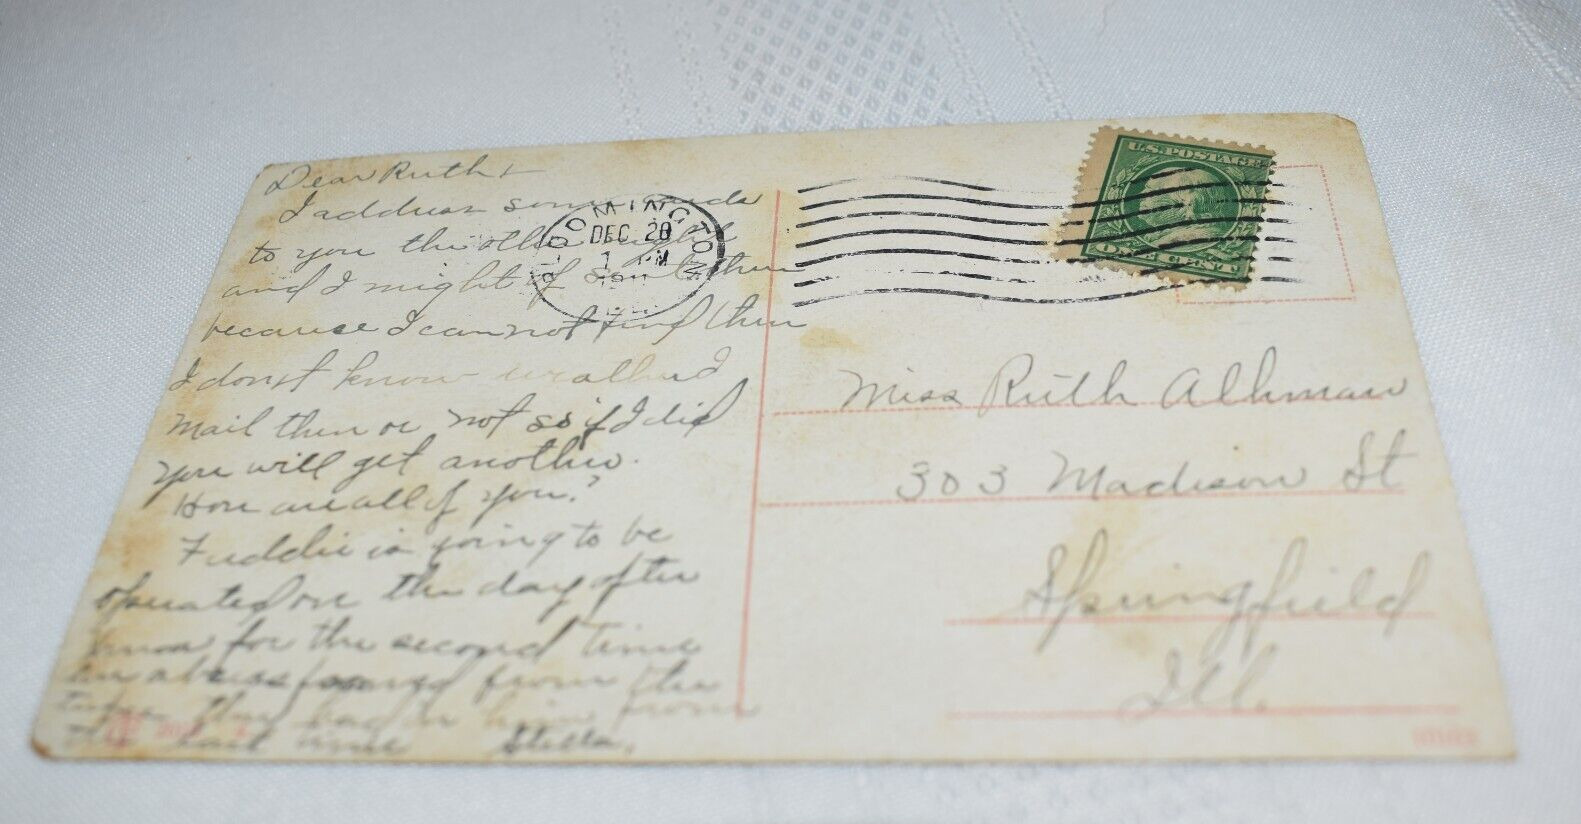 Dear Ruth
I address some cards
to you the other night
and I might of sent them
because I can not find them
I don't know weather I
mail them or not so if I did
you will get another.
How are all of you?
Fuddie is going to be
operated on the day after
for the second time
an formed from the
they had in him from
the last time Stella.
BLOOMINGTON
DEC 28
1 PM
ILL
U.S. POSTAGE
ONE CENT
Miss Ruth Alhman
303 Madison St
Springfield
Ill.